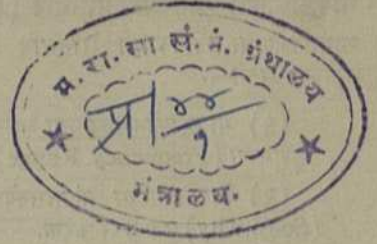 म. रा. सा. सं. मं. ग्रंथालय
प्रा/४४/१
मंत्रालय.